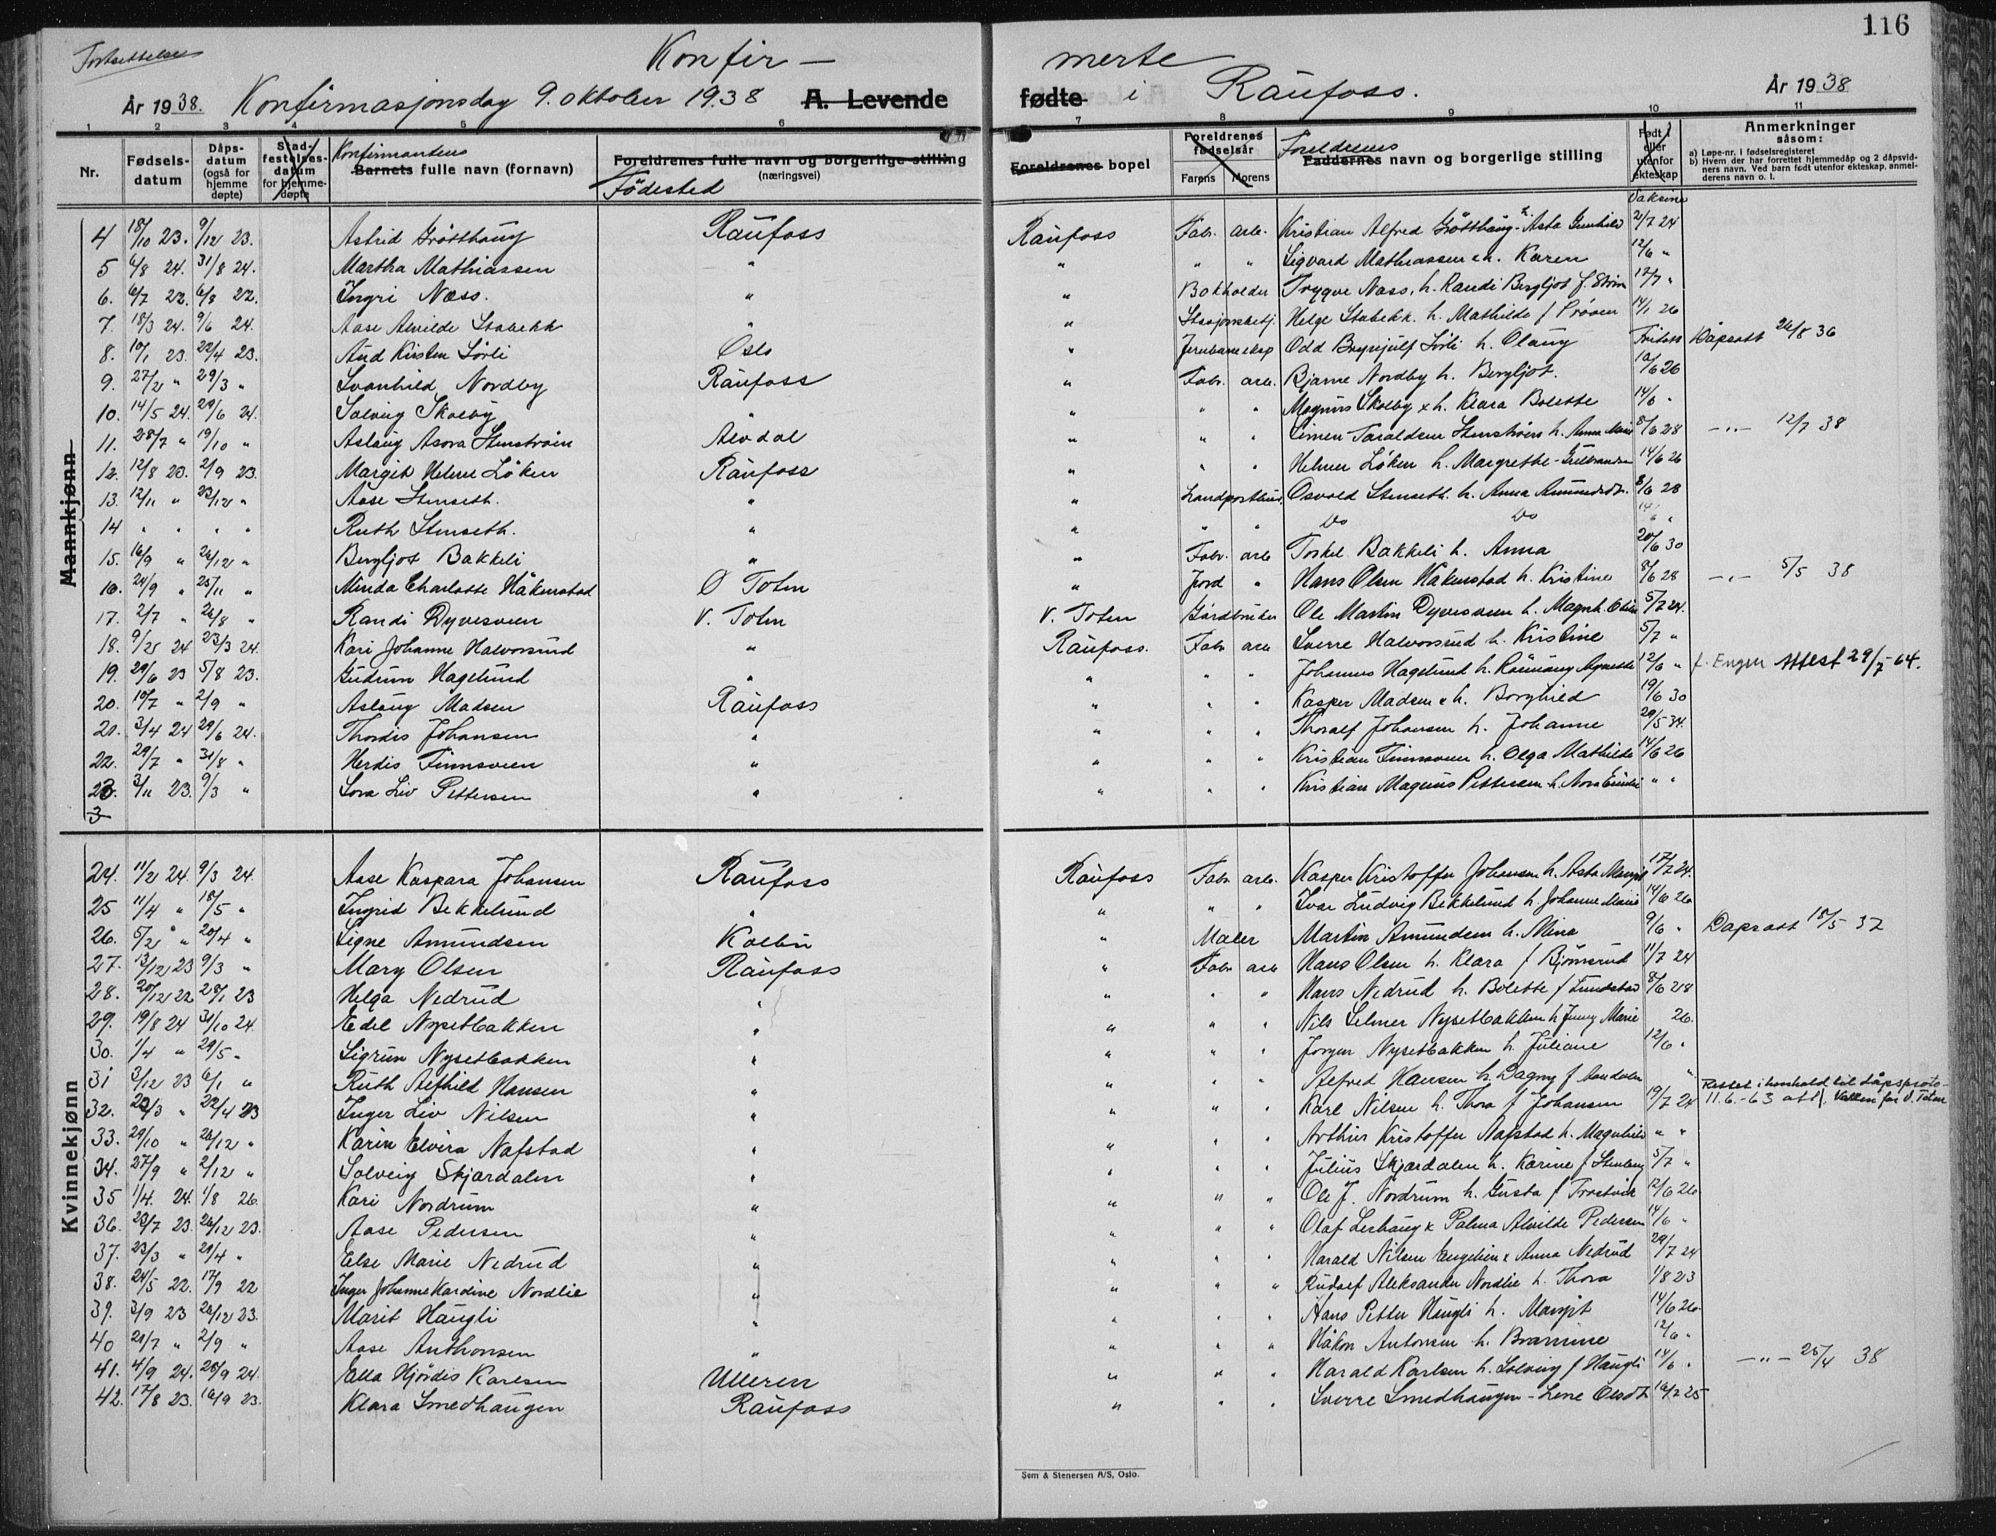 116
Fortsettelse
Konfir - merte
År 1938. Konfirmasjonsdag 9. oktober 1938 A. Levende fødte i Raufoss. År 1938
1 2 3 4 5 6 7 8 9 10 11
Nr. Fødselsdatum Dåpsdatum (også for hjemmedøpte) Stadfestelsesdatum for hjemmedøpte Konfirmantens Barnets fulle navn (fornavn) Foreldrenes fulle navn og borgerlige stilling (næringsvei) Fødested Foreldrenes bopel Foreldrenes fødselsår Farens Morens Foreldrenes Faddernes navn og borgerlige stilling Født i eller utenfor ekteskap Anmerkninger såsom:
a) Løpe-nr. i fødselsregisteret
b) Hvem der har forrettet hjemmedåp og 2 dåpsvidners navn. Ved barn født utenfor ekteskap, anmelderens navn o. l.
Vaksine
Mannkjønn
4 18/10 23. 9/12 23. Astrid Grøtthaug Raufoss Raufoss Fabr. arb. Kristian Alfred Grøtthaug - Asta Gunhild 2/7 24
5 6/8 24. 31/8 24. Martha Mathiassen " " " " Sigvard Mathiassen & h. Karen 12/6 "
6. 6/7 23. 6/8 22. Ingri Næss. " " Bokholder Trygve Næss, h. Randi Bergljot f. Strøm 17/7 "
7. 18/3 24. 9/6 24. Aase Alvilde Stabekk " " Stasjonsbetj. Helge Stabekk h. Mathilde f Prøven 14/1 26
8. 10/1 23. 22/4 23. Aud Kirsten Sørli Oslo " Jernbaneeksp Odd Brynjulf Sørli h. Olaug Fritatt Dåpsatt 26/8 36
9. 27/2 " 29/3 " Svanhild Nordby Raufoss " Fabr. arb. Bjarne Nordby h. Bergljot. 10/6 26
10. 14/5 24. 29/6 24. Solveig Skolby " " " " Magnus Skolby & h. Klara Bolette 14/6 "
11. 28/7 " 19/10 " Aslaug Asora Stenstrøen Alvdal " " " Simen Taraldsen Stenstrøen h. Anna Marie 8/6 28 - " - 12/7 38
12. 12/8 23. 2/9 23. Margit Helene Løken Raufoss " " " Helmer Løken h. Margrethe - Gulbrandsen 14/6 26
13. 12/11 " 23/12 " Aase Stenseth. " " Landposthus. Osvald Stenseth h. Anna Amundsdt. 8/6 28
14 " " " " Ruth Stenseth. " " " " Do Do 14/6 "
15. 16/9 " 26/12 " Bergljot Bakkeli " " Fabr. arb Torkel Bakkeli h. Anna 20/6 30
16. 24/9 " 25/11 " Minda Charlotte Håkenstad Ø Toten " Jord " Hans Olsen Håkenstad h. Kristine 8/6 28 - " - 5/5 38
17. 2/7 " 26/8 " Randi Dyvesveen V. Toten V. Toten Gårdbruker Ole Martin Dyvesveen h. Magnh. Eline 5/7 24.
18. 9/25 24 23/3 24. Kari Johanne Halvorsrud " Raufoss. Fabr arb Sverre Halvorsrud h. Kristine 5/7 "
19. 29/6 23 5/8 23. Gudrun Hagelund " " " " Johannes Hagelund h. Rønnaug Agnethe 12/6 " f. Engen Attest 29/7-64.
20. 10/7 " 2/9 " Aslaug Madsen Raufoss " " " Kasper Madsen & h. Borghild 19/6 30
21. 3/4 24 29/6 24. Thordis Johansen " " " " Thoralf Johansen h. Johanne 29/5 34.
22. 29/7 " 31/8 " Herdis Finnsveen " " " " Kristian Finnsveen h. Olga Mathilde 14/6 26
23. 3/11 23. 9/3 " Lova Liv Pettersen " " " " Kristian Magnus Pettersen h. Nora Emilie " "
3
Kvinnekjønn
24. 11/2 24. 9/3 24. Aase Kaspara Johansen Raufoss Raufoss Fabr arb. Kasper Kristoffer Johansen h. Asta Margit 17/7 24.
25 11/4 " 18/5 " Ingrid Bekkelund " " " " Ivar Ludvig Bekkelund h. Johanne Marie 14/6 26
26. 5/2 " 20/4 " Signe Amundsen Kolbu " Maler Martin Amundsen h. Mina 9/6 " Dåpsatt 18/5 37
27. 13/12 23 9/3 " Mary Olsen Raufoss " Fabr arb Hans Olsen h. Klara f Bjørnsrud 11/7 24
28. 20/12 22 28/1 23 Helga Nedrud " " " " Hans Nedrud h. Bolette f Lundstad 8/6 28
29. 19/8 24 31/10 24. Edel Nysetbakken " " " " Nils Selmer Nysetbakken h Jenny Marie 26.
30. 1/4 " 29/5 " Sigrun Nysetbakken " " " " Jørgen Nysetbakken h. Juliane 12/6 "
31 3/12 23 6/1 " Ruth Alfhild Hansen " " " " Alfred Hansen h. Dagny f Aandalen "
32. 23/3 " 22/4 23 Inger Liv Nilsen " " " " Karl Nilsen h. Thora f Johansen 19/7 24 Rettet i henhold til dåpsproto- 11.6.-63 att. Vallen for V. Toten
33. 29/10 " 26/12 " Karin Elvira Nafstad " " " " Arthur Kristoffer Nafstad h. Magnhild " "
34. 27/9 " 2/12 " Solveig Skjærdalen " " " " Julius Skjærdalen h. Karine f Stenberg 5/7 "
35 1/4. 24. 1/8 26. Kari Nordrum " " " " Ole J. Nordrum h. Gusta f Trostvik 12/6 26
36. 23/7 23. 26/12 23. Aase Pedersen " " " " Olaf Lerhaug & Palma Alvilde Pedersen 14/6 "
37. 23/3 " 21/4 " Else Marie Nedrud " " " " Harald Nilsen Engelien & Anna Nedrud 29/7 24
38. 24/5 22. 17/9 22 Inger Johanne Kardine Nordlie " " " " Rudolf Aleksander Nordlie h. Thora 1/8 23
39. 3/9 23 26/12 23. Marit Haugli " " " " Hans Petter Haugli h. Margit 14/6 26.
40 21/7 " 2/9 " Aase Anthonsen " " " " Håkon Antonsen h. Bramine 12/6 "
41. 4/9 24. 28/9 24. Ella Hjørdis Karlsen Ulleren " " " Harald Karlsen h. Solveig f Haugli 14/6 " - " - 25/4 38
42. 17/8 23. 16/9 23. Klara Smedhaugen Raufoss " " " Sverre Smedhaugen - Lene Olsdt. 16/2 25
Sem & Stenersen A/S, Oslo.